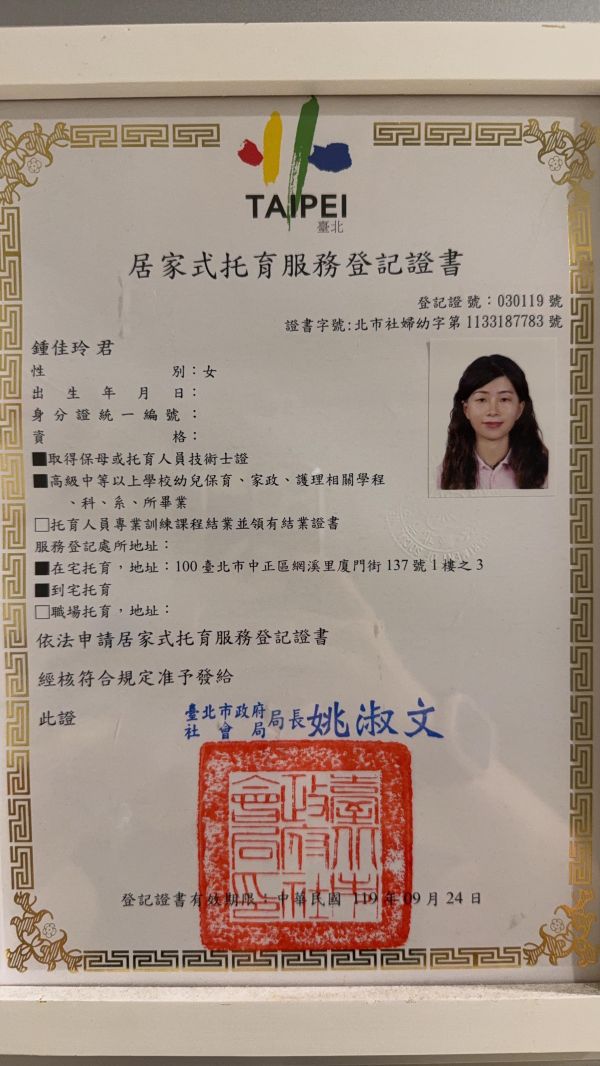 TAIPEI
臺北
居家式托育服務登記證書
登記證號：030119 號
證書字號:北市社婦幼字第 1133187783 號
鍾佳玲 君
性別：女
出生年月日：
身分證統一編號：
資格：
■取得保母或托育人員技術士證
■高級中等以上學校幼兒保育、家政、護理相關學程
、科、系、所畢業
□托育人員專業訓練課程結業並領有結業證書
服務登記處所地址：
■在宅托育，地址：100 臺北市中正區網溪里廈門街 137 號 1 樓之 3
■到宅托育
□職場托育，地址：
依法申請居家式托育服務登記證書
經核符合規定准予發給
此證
臺北市政府社會局局長姚淑文
臺北市政府社會局印
登記證書有效期限：中華民國 119 年 09 月 24 日